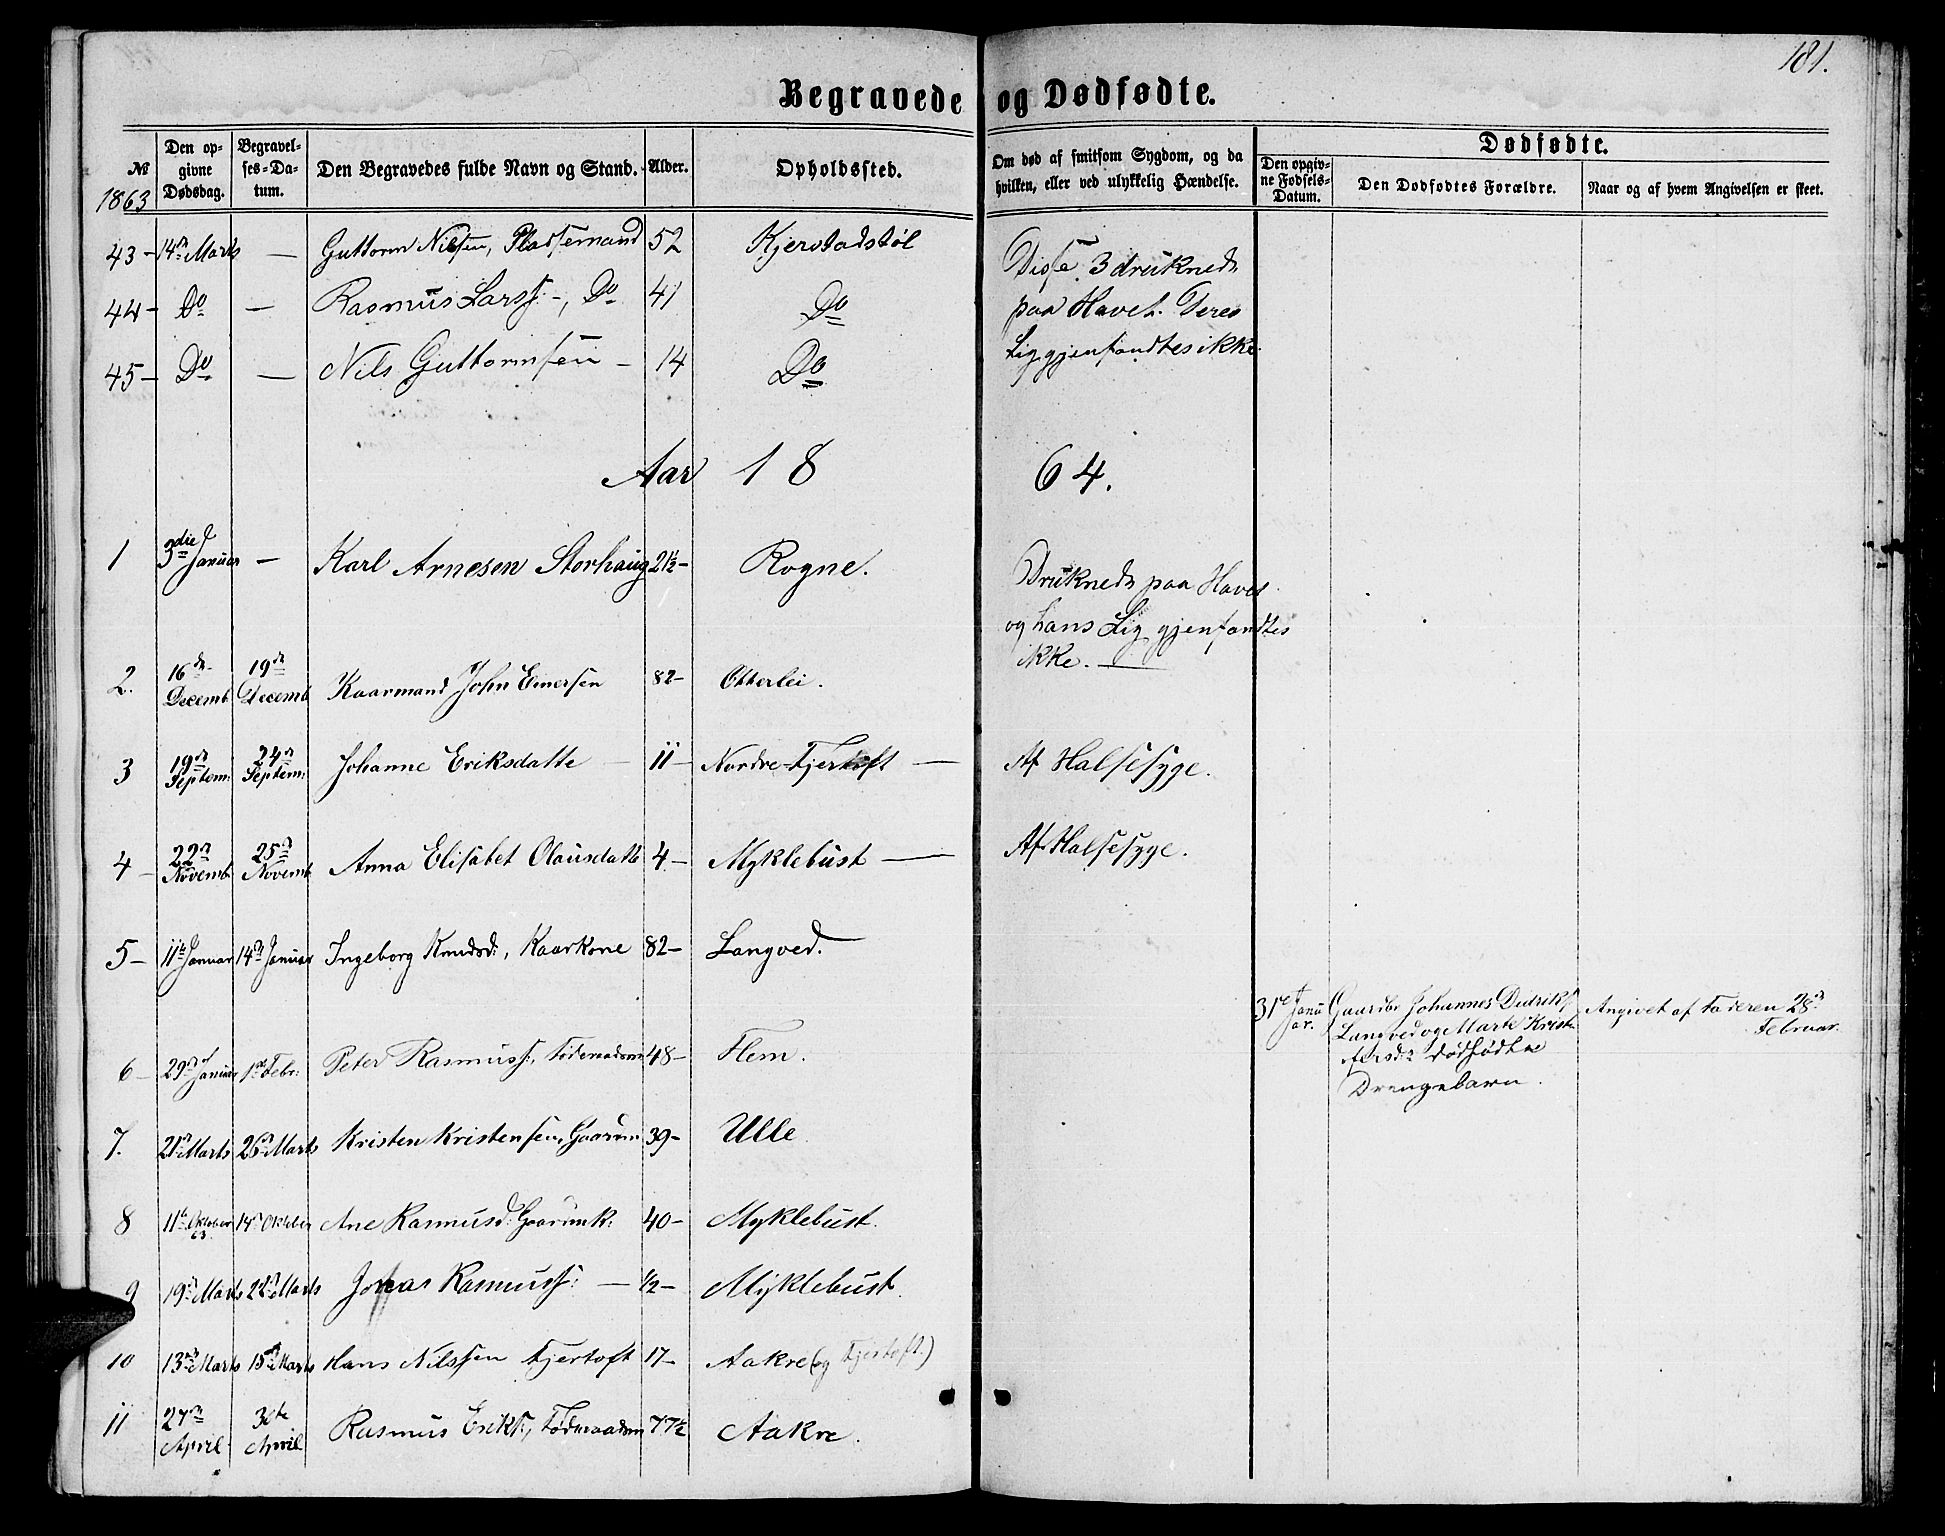 181.
Begravede og Dødfødte.
№ 1863
Den opgivne Dødsdag.
Begravelses-Datum.
Den Begravedes fulde Navn og Stand.
Alder.
Opholdssted.
Om død af smitsom Sygdom, og da hvilken, eller ved ulykkelig Hændelse.
Dødfødte.
Den opgivne Fødsels-Datum.
Den Dødfødtes Forældre.
Naar og af hvem Angivelsen er skeet.
43 - 14de Marts — Guttorm Nilsen, Pladsemand 52 Kjerstadstøl
44 - Do — Rasmus Larss: -, Do 41 Do
45 - Do — Nils Guttormsen - 14 Do
Disse 3 druknede
paa Havet. Deres
Lig gjenfandtes ikke.
Aar 1864.
1 3die Januar — Karl Arnesen Storhaug 21½ - Rogne.
Druknede paa Havet
og hans Lig gjenfandtes
ikke. —
2. 16de Decemb. 19de Decemb Kaarmand John Emersen 82 - Otterlei.
3 19de Septem: 24de Septem: Johanne Eriksdatte — 11 - Nordre-Fjertoft — Af Halsesyge.
4 - 22de Novemb. 25de Novemb Anna Elisabet Olausdatt 4 - Myklebust — Af Halsesyge.
5 - 11te Januar 14de Januar Ingeborg Knudsd:, Kaarkone 82 - Langved.
31te Januar. Gaardbr Johannes Didriks.
Langved og Marte Krist
dødfødte
Drengebarn.
Angivet af Faderen 28de
Februar.
6 - 29de Januar 1ste Febr: Peter Rasmuss:, Føderaadsm 48 - Flem.
7. 21de Marts 26de Marts Kristen Kristensen, Gaardm 39 - Ulle.
8 11te Oktober 63. 14de Oktober Ane Rasmusd: Gaardmk: 40 - Myklebust.
9 19de Marts 22de Marts Jonas Rasmuss: — ½ - Myklebust.
10 13de Marts 15de Marts Hans Nilssen Fjertoft 17 - Aakre (og Fjertoft.)
11 27de April 30te April Rasmus Eriks:, Føderaadsm 77½ Aakre.